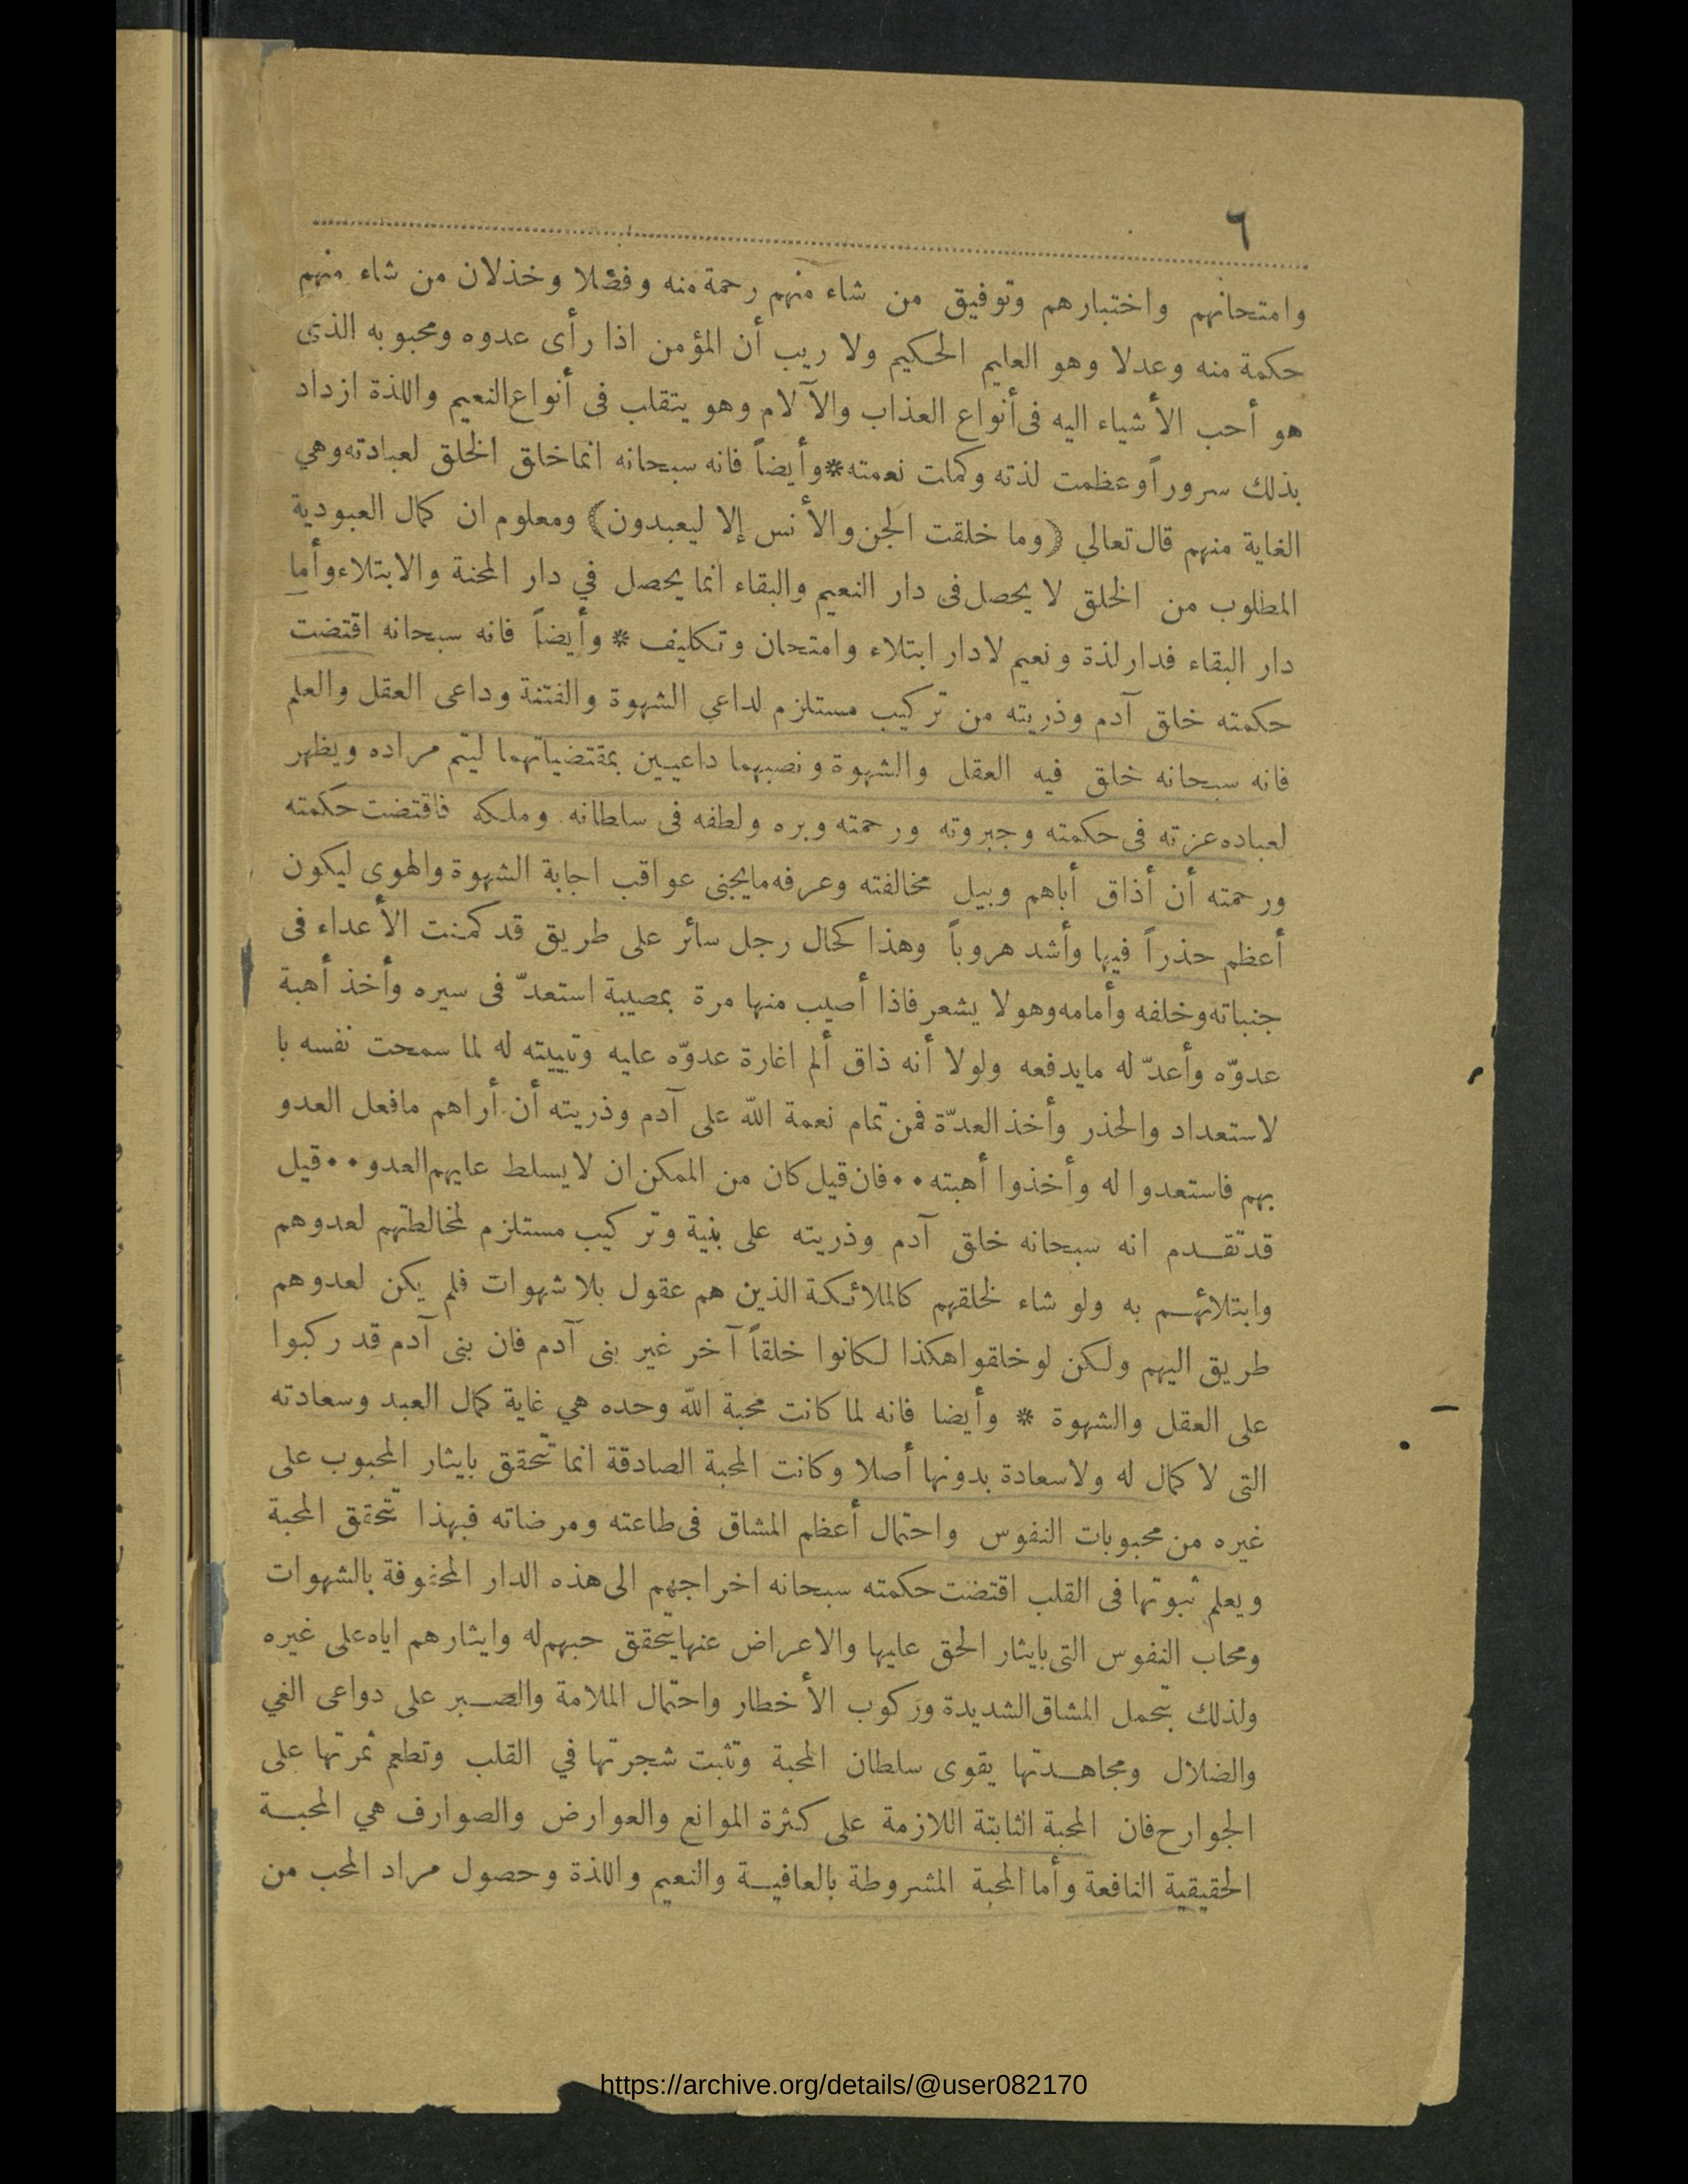 ٦
وامتحانهم واختبارهم وتوفيق من شاء منهم رحمة منه وفضلا وخذلان من شاء منهم
حكمة منه وعدلا وهو العليم الحكيم ولا ريب أن المؤمن اذا رأى عدوه ومحبوبه الذى
هو أحب الأشياء اليه فى أنواع العذاب والآلام وهو يتقلب فى أنواع النعيم واللذة ازداد
بذلك سروراً وعظمت لذته وكملت نعمته * وأيضاً فانه سبحانه انما خلق الخلق لعبادته وهي
الغاية منهم قال تعالي (وما خلقت الجن والأنس إلا ليعبدون) ومعلوم ان كمال العبودية
المطلوب من الخلق لا يحصل فى دار النعيم والبقاء انما يحصل في دار المحنة والابتلاء وأما
دار البقاء فدار لذة ونعيم لادار ابتلاء وامتحان وتكليف * وأيضاً فانه سبحانه اقتضت
حكمته خلق آدم وذريته من تركيب مستلزم لداعي الشهوة والفتنة وداعى العقل والعلم
فانه سبحانه خلق فيه العقل والشهوة ونصبهما داعيين بمقتضياتهما ليتم مراده ويظهر
لعباده عزته فى حكمته وجبروته ورحمته وبره ولطفه فى سلطانه وملكه فاقتضت حكمته
ورحمته أن أذاق أباهم وبيل مخالفته وعرفه مايجنى عواقب اجابة الشهوة والهوى ليكون
أعظم حذراً فيها وأشد هروباً وهذا كحال رجل سائر على طريق قد كمنت الأعداء فى
جنباته وخلفه وأمامه وهو لا يشعر فاذا أصيب منها مرة بمصيبة استعدّ فى سيره وأخذ أهبة
عدوّه وأعدّ له مايدفعه ولولا أنه ذاق ألم اغارة عدوّه عليه وتبييته له لما سمحت نفسه با
لاستعداد والحذر وأخذ العدّة فمن تمام نعمة الله على آدم وذريته أن أراهم مافعل العدو
بهم فاستعدوا له وأخذوا أهبته •• فان قيل كان من الممكن ان لا يسلط عليهم العدو •• قيل
قد تقدم انه سبحانه خلق آدم وذريته على بنية وتركيب مستلزم لمخالطتهم لعدوهم
وابتلائهم به ولو شاء لخلقهم كالملائكة الذين هم عقول بلا شهوات فلم يكن لعدوهم
طريق اليهم ولكن لو خلقوا هكذا لكانوا خلقاً آخر غير بنى آدم فان بنى آدم قد ركبوا
على العقل والشهوة * وأيضا فانه لما كانت محبة الله وحده هي غاية كمال العبد وسعادته
التى لا كمال له ولا سعادة بدونها أصلا وكانت المحبة الصادقة انما تتحقق بايثار المحبوب على
غيره من محبوبات النفوس واحتمال أعظم المشاق فى طاعته ومرضاته فبهذا تتحقق المحبة
ويعلم ثبوتها فى القلب اقتضت حكمته سبحانه اخراجهم الى هذه الدار المحفوفة بالشهوات
ومحاب النفوس التى بايثار الحق عليها والاعراض عنها يتحقق حبهم له وايثارهم اياه على غيره
ولذلك بتحمل المشاق الشديدة وركوب الأخطار واحتمال الملامة والصبر على دواعى الغي
والضلال ومجاهدتها يقوى سلطان المحبة وتثبت شجرتها في القلب وتطعم ثمرتها على
الجوارح فان المحبة الثابتة اللازمة على كثرة الموانع والعوارض والصوارف هي المحبة
الحقيقية النافعة وأما المحبة المشروطة بالعافية والنعيم واللذة وحصول مراد المحب من
https://archive.org/details/@user082170